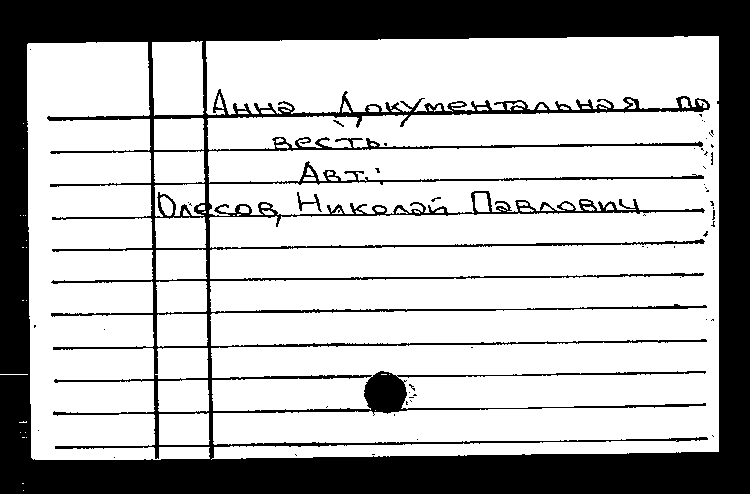 Анна Документальная по-
весть.
Авт.:
Олесов, Николай Павлович